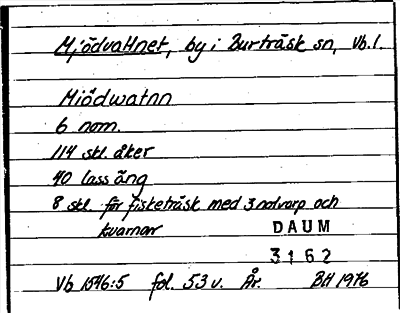 Mjödvattnet, by i Burträsk sn, Vb.l.
Miödwatnn
6 nom.
114 skl. åker
40 lass äng
8 skl. för fisketräsk med 3 notvarp och
kvarnar
DAUM
3162
Vb 1546:5 fol. 53 v. År. BH 1976